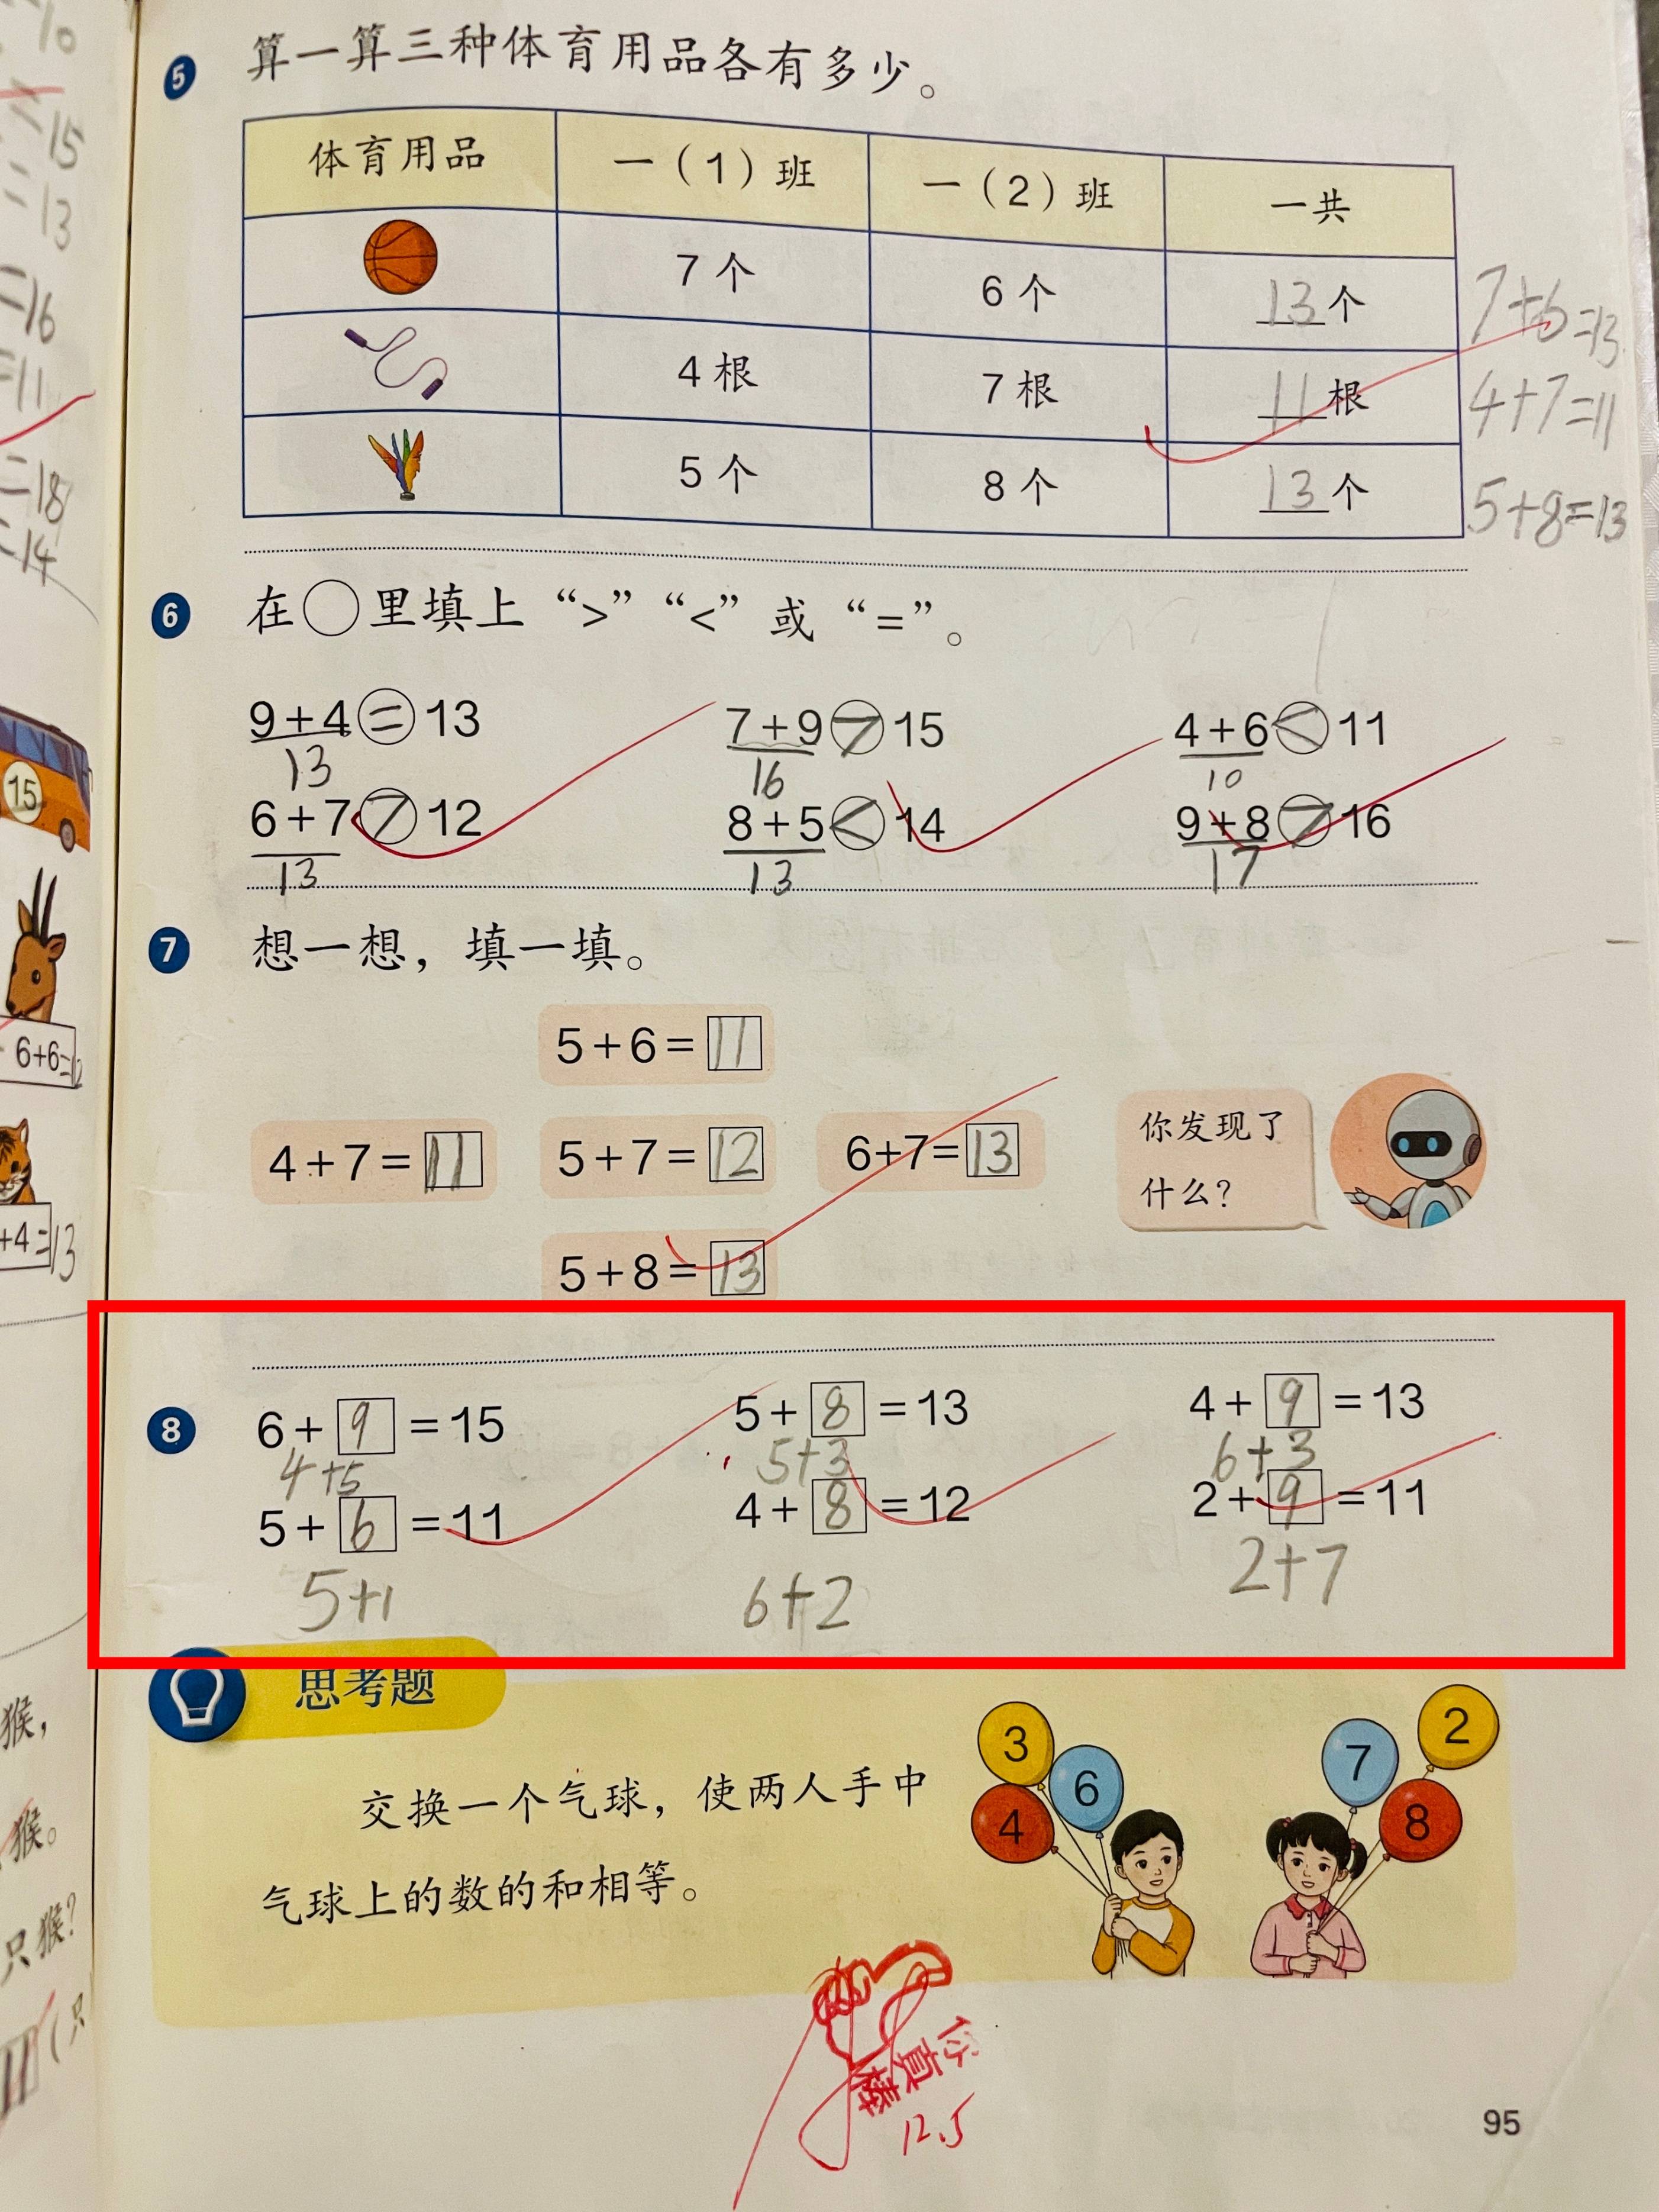 10
=15
=13
=16
=11
=18
=14
15
6+6=12
+4=13
猴，
猴。
只猴？
11(只
5 算一算三种体育用品各有多少。
体育用品 一（1）班 一（2）班 一共
7个 6个 13个 7+6=13
4根 7根 11根 4+7=11
5个 8个 13个 5+8=13
6 在○里填上“>”“<”或“=”。
9+4=13 7+9>15 4+6<11
13 16 10
6+7>12 8+5<14 9+8>16
13 13 17
7 想一想，填一填。
5+6=11
4+7=11 5+7=12 6+7=13
5+8=13
你发现了
什么？
8 6+9=15 5+8=13 4+9=13
4+5 5+3 6+3
5+6=11 4+8=12 2+9=11
5+1 6+2 2+7
思考题
交换一个气球，使两人手中
气球上的数的和相等。
3 6 4 7 2 8
你真棒
12.5
95